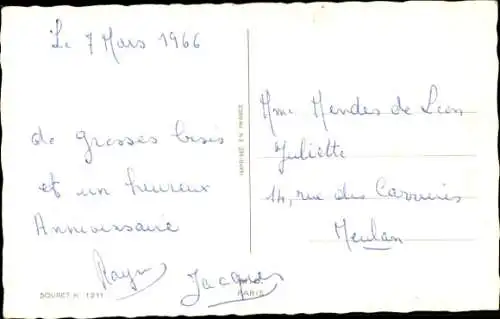 Le 7 Mars 1966
de grosses bisis
et un heureux
Anniversaire
Raym
Jacques
DOURET N° 1211
PARIS
IMPRIMÉ EN FRANCE
Mme Mendes de Leon
Juliette
14, rue des Carrières
Meulan